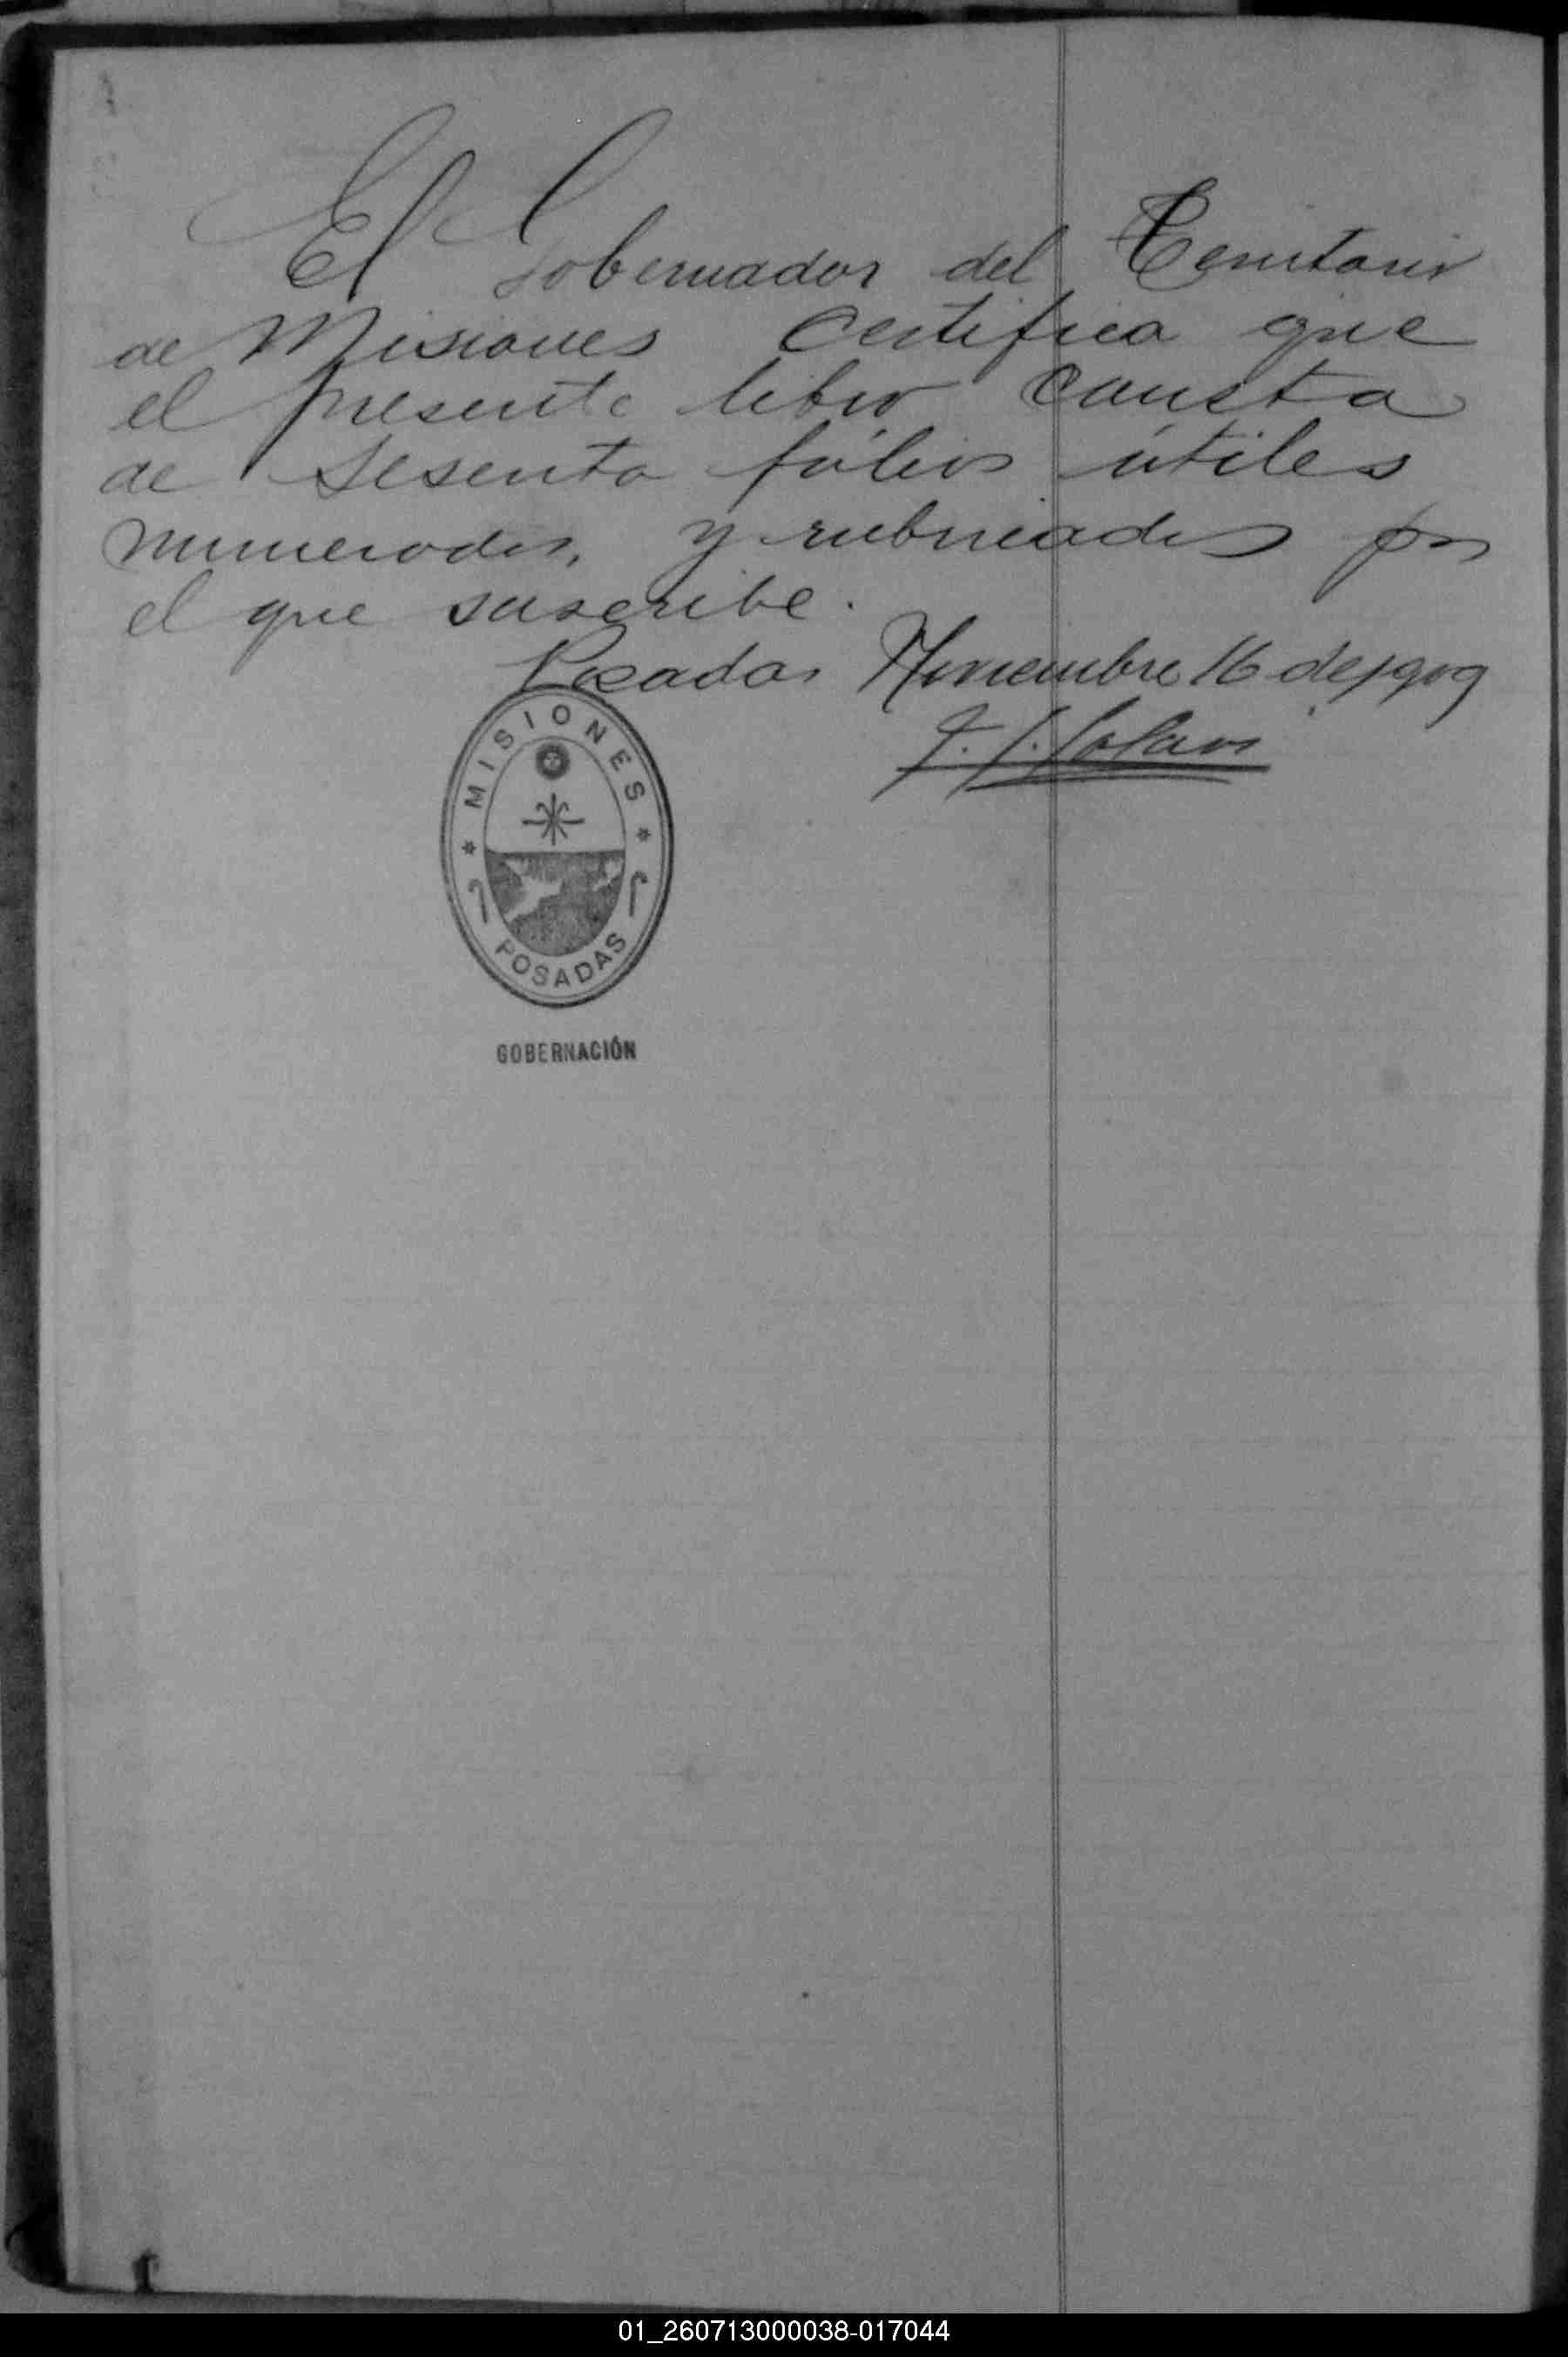 El Gobernador del Territorio
de Misiones Certifica que
el presente libro consta
de Sesenta fólios útiles
numerados, y rubricados por
el que suscribe.
Posadas Noviembre 16 de 1909
MISIONES
POSADAS
GOBERNACIÓN
01_260713000038-017044